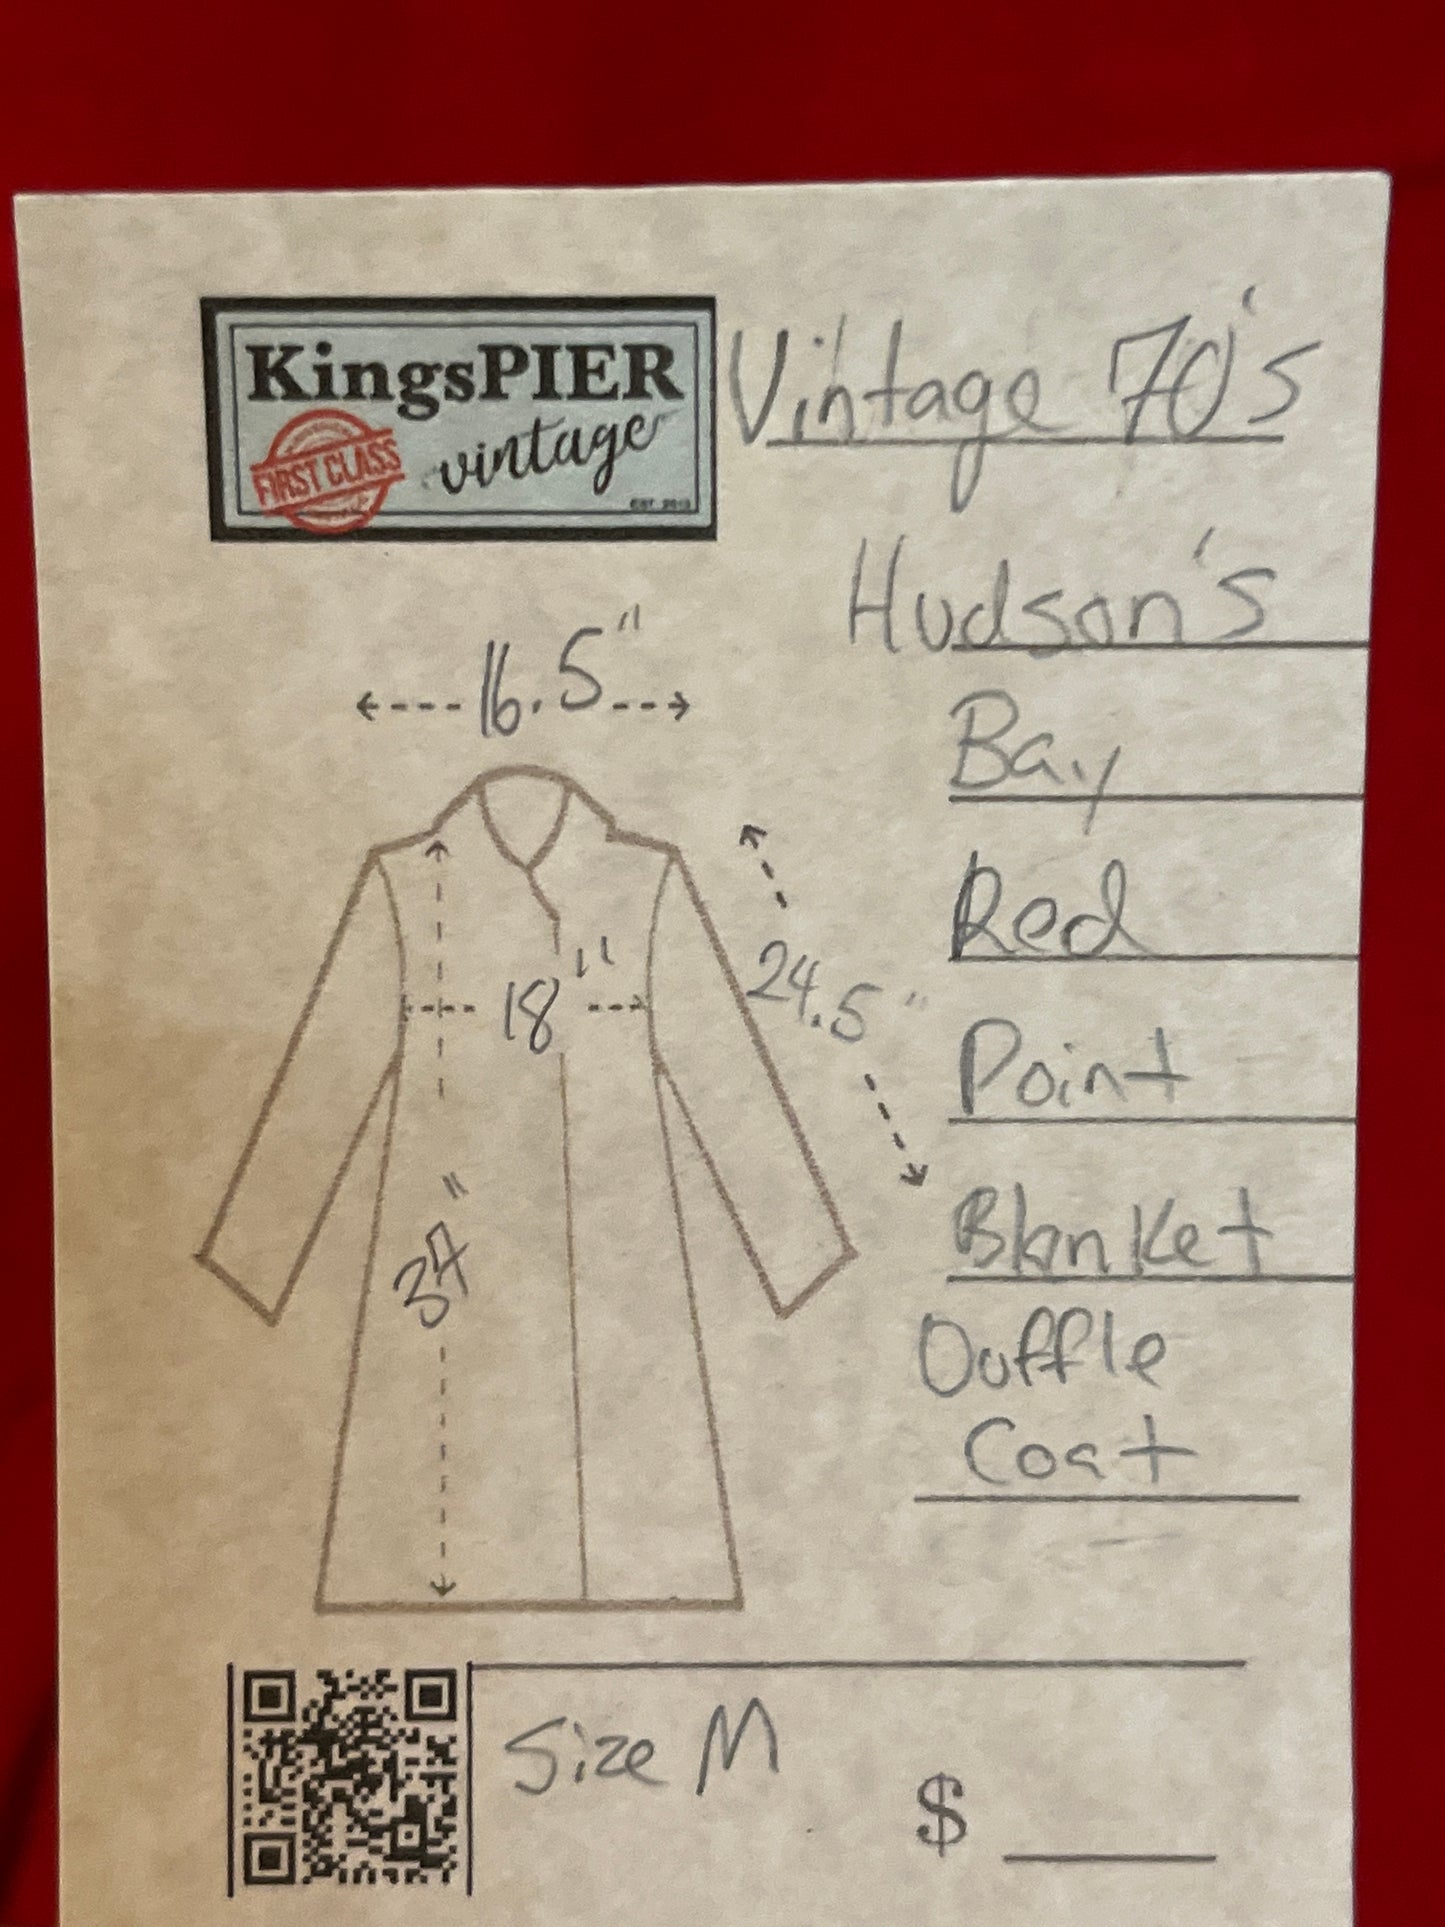 KingsPIER
vintage
FIRST CLASS
Vintage 70's
Hudson's
Bay
Red
Point
Blanket
Duffle
Coat
16.5"
18"
24.5"
37"
Size M
$